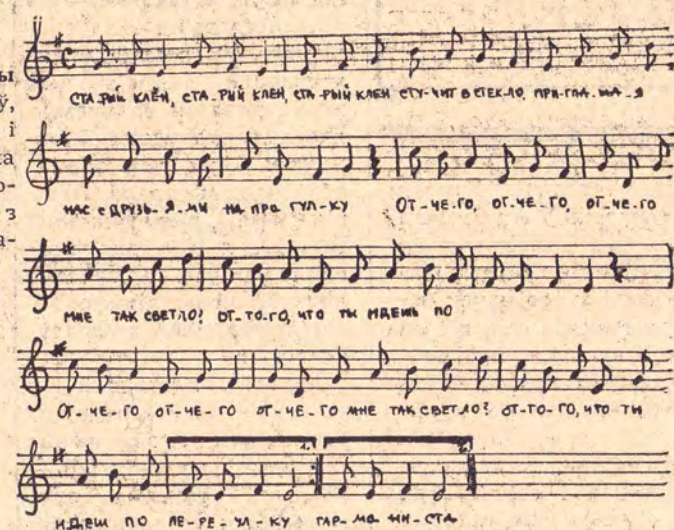 ІІ
ы
СТА-РЫЙ КЛЁН, СТА-РЫЙ КЛЕН, СТА-РЫЙ КЛЕН СТУ-ЧИТ В СТЕК-ЛО, ПРИ-ГЛА-ША-Я
ў,
і
ка
о-
НАС С ДРУЗЬ-Я-МИ НА ПРО ГУЛ-КУ ОТ-ЧЕ-ГО, ОТ-ЧЕ-ГО, ОТ-ЧЕ-ГО
з
а-
МНЕ ТАК СВЕТЛО? ОТ-ТО-ГО, ЧТО ТЫ ИДЕШЬ ПО
ОТ-ЧЕ-ГО ОТ-ЧЕ-ГО ОТ-ЧЕ-ГО МНЕ ТАК СВЕТЛО? ОТ-ТО-ГО, ЧТО ТЫ
1. 2.
ИДЕШ ПО ПЕ-РЕ-УЛ-КУ ГАР-МО НИ-СТА